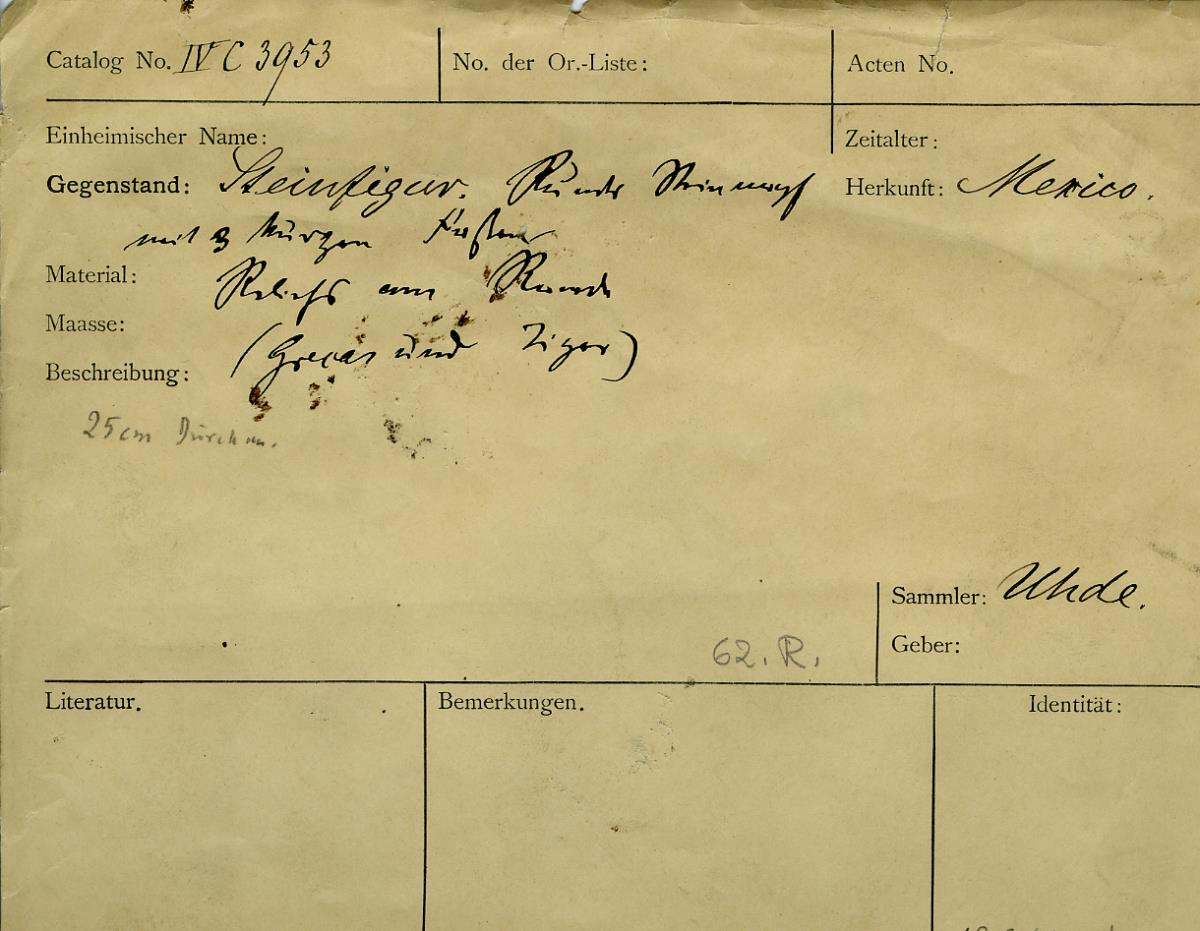 Catalog No. IV C 3953
No. der Or.-Liste:
Acten No.
Einheimischer Name:
Zeitalter:
Gegenstand: Steinfigur. Runder Steinnapf
Herkunft: Mexico.
mit 3 kurzen Füssen
Material:
Reliefs am Rande
Maasse:
(Grecas und Tiger)
Beschreibung:
25 cm Durchm.
Sammler: Uhde.
62. R.
Geber:
Literatur.
Bemerkungen.
Identität: